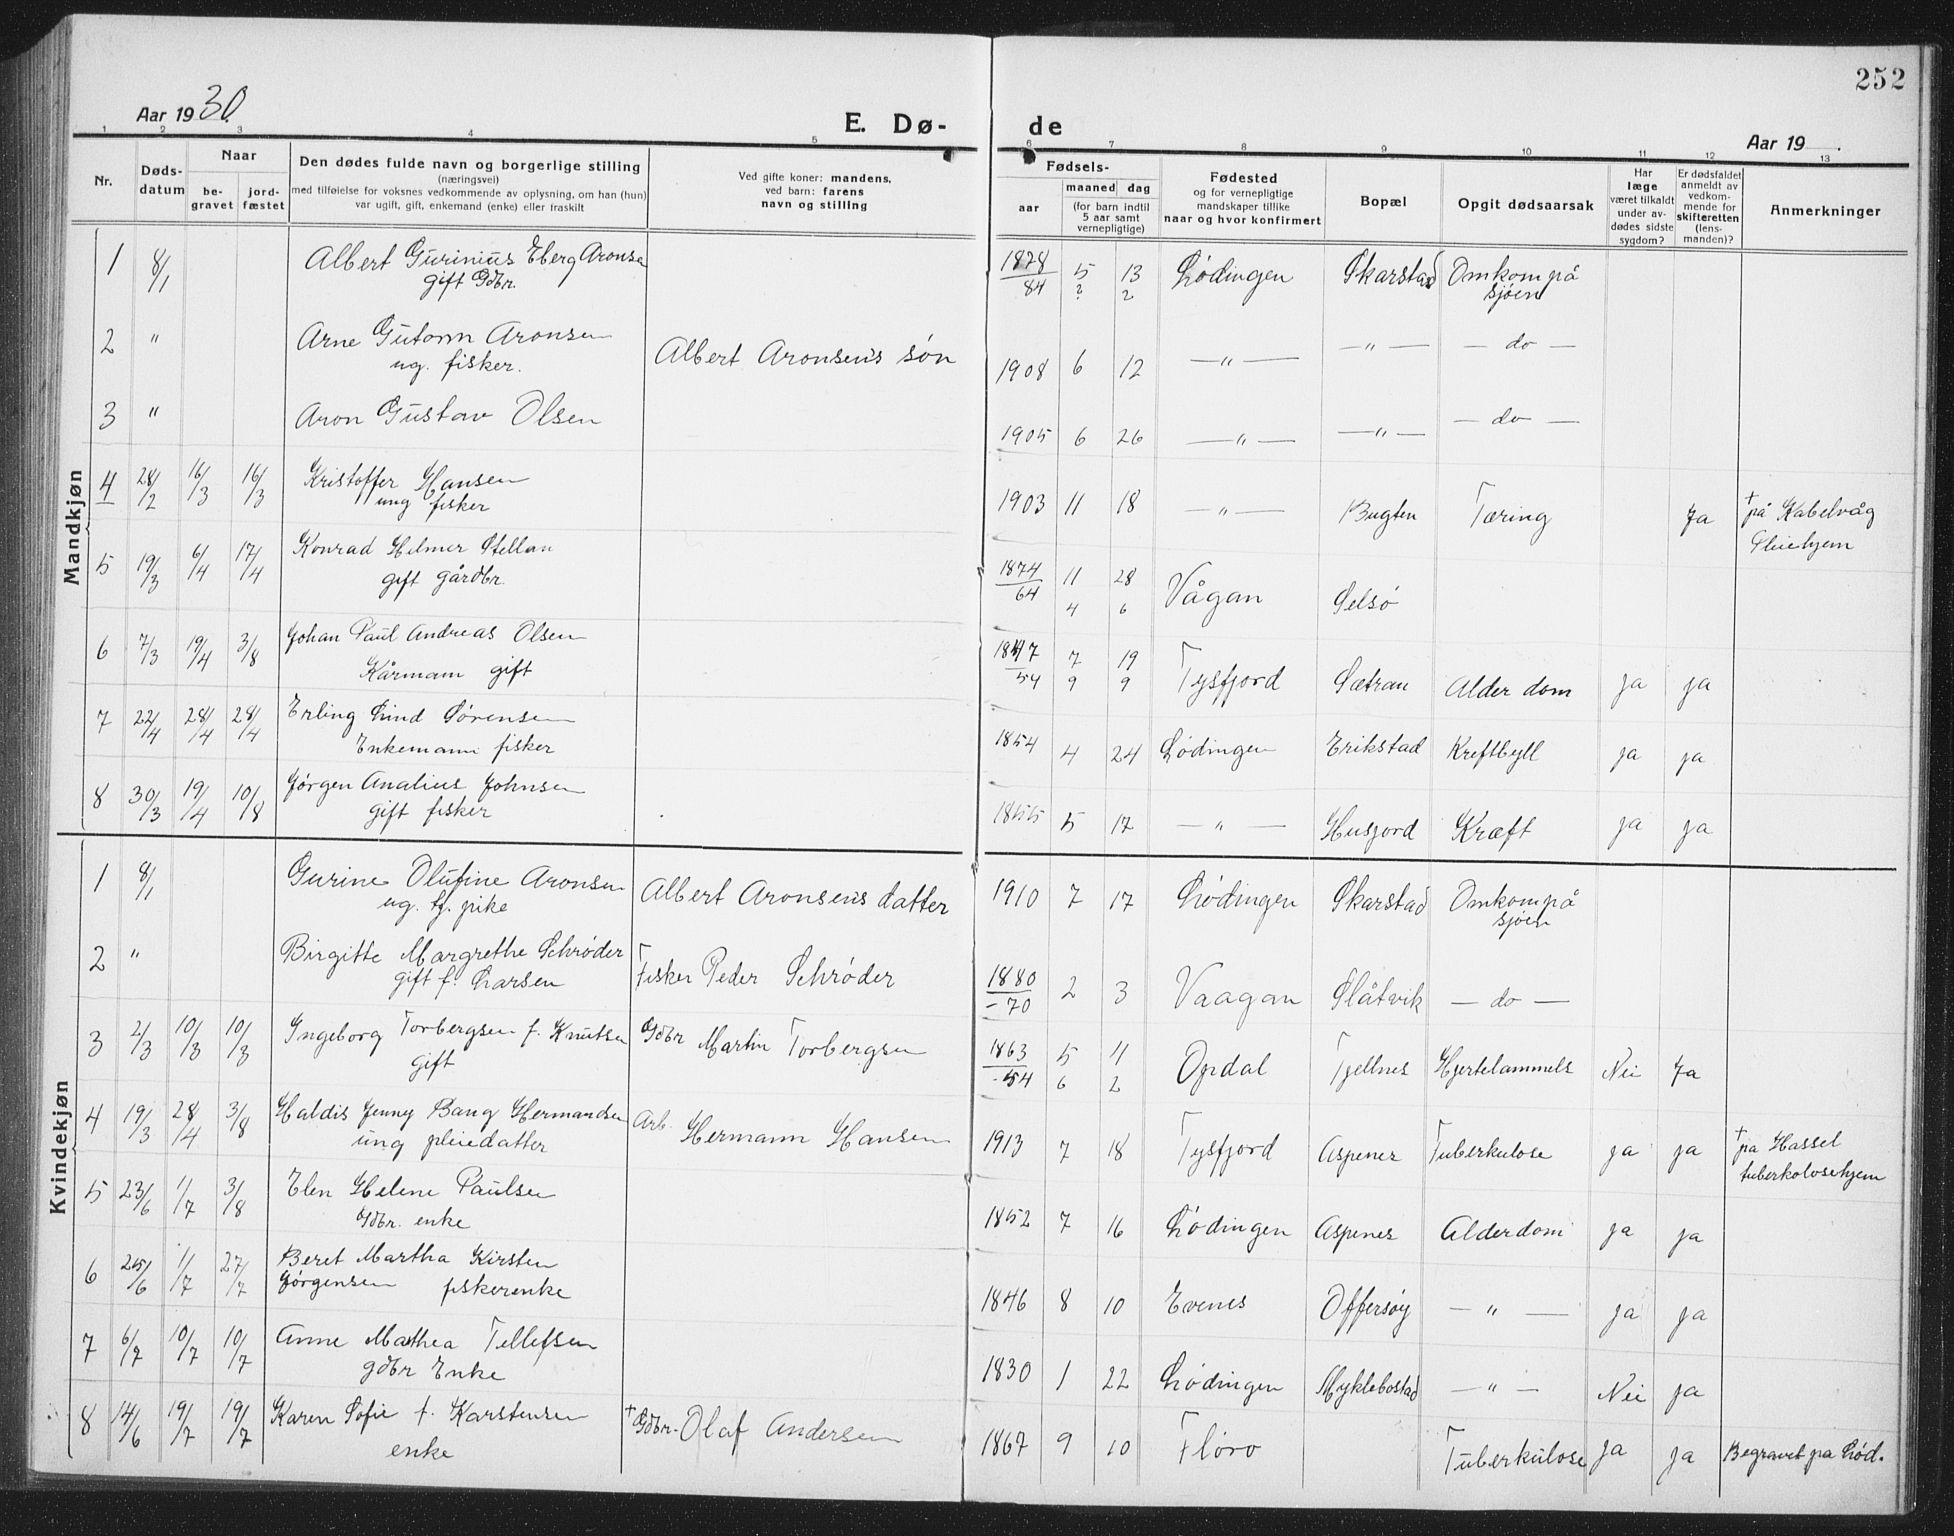 252
Aar 1930.
E. Dø- de
Aar 19 .
1 2 3 4 5 6 7 8 9 10 11 12 13
Nr.
Døds-
datum
Naar
be-
gravet
jord-
fæstet
Den dødes fulde navn og borgerlige stilling
(næringsvei)
med tilføielse for voksnes vedkommende av oplysning, om han (hun)
var ugift, gift, enkemand (enke) eller fraskilt
Ved gifte koner: mandens,
ved barn: farens
navn og stilling
Fødsels-
aar
maaned dag
(for barn indtil
5 aar samt
vernepligtige)
Fødested
og for vernepligtige
mandskaper tillike
naar og hvor konfirmert
Bopæl
Opgit dødsaarsak
Har
læge
været tilkaldt
under av-
dødes sidste
sygdom?
Er dødsfaldet
anmeldt av
vedkom-
mende for
skifteretten
(lens-
manden)?
Anmerkninger
Mandkjøn
1 8/1 Albert Gurinius Eberg Aronse 1878 5 13 Lødingen Skarstad Omkom på
gift Gdbr. 84 2 2 sjøen
2 " Arne Gutorm Aronsen Albert Aronsens søn 1908 6 12 — " — — " — — do —
ug. fisker.
3 " Aron Gustav Olsen 1905 6 26 — " — — " — — do —
4 28/2 16/3 16/3 Kristoffer Hansen 1903 11 18 — " — Bugten Tæring Ja † på Kabelvåg
ung fisker Pleiehjem
5 19/3 6/4 17/4 Konrad Helmer Stellan 1874 11 28 Vågan Selsø
gift gårdbr. 64 4 6
6 7/3 19/4 3/8 Johan Paul Andreas Olsen 1847 7 19 Tysfjord Sætran Alderdom ja ja
Kårmann gift 54 9 9
7 22/4 28/4 28/4 Erling Lind Sørensen 1854 4 24 Lødingen Erikstad Kreftbyll ja ja
Enkemann fisker
8 30/3 19/4 10/8 Jørgen Analius Johnsen 1855 5 17 — " — Husjord Kræft ja ja
gift fisker
Kvindekjøn
1 8/1 Gurine Olufine Aronsen Albert Aronsens datter 1910 7 17 Lødingen Skarstad Omkom på
ug. tj. pike sjøen
2 " Birgitte Margrethe Schrøder Fisker Peder Schrøder 1880 2 3 Vaagan Slåtvik — do —
gift f. Larsen -70
3 2/3 10/3 10/3 Ingeborg Torbergsen f. Knutsen Gdbr Martin Torbergsen 1863 5 11 Opdal Tjellnes Hjertelammels Nei Ja
gift -54 6 2
4 19/3 28/4 3/8 Haldis Jenny Bang Hermandsen Arb. Hermann Hansen 1913 7 18 Tysfjord Aspenes Tuberkulose ja ja † pa Hassel
ung pleiedatter tuberkolosehjem
5 23/6 1/7 3/8 Elen Helene Paulsen 1852 7 16 Lødingen Aspenes Alderdom ja ja
Gdbr. enke
6 25/6 1/7 27/7 Beret Martha Kirsten 1846 8 10 Evenes Offersøy — " — ja ja
Jørgensen fiskerenke
7 6/7 10/7 10/7 Anne Mathea Tellefsen 1830 1 22 Lødingen Myklebostad — " — Nei ja
gdbr Enke
8 14/6 19/7 19/7 Karen Sofie f. Karstensen † Gdbr. Olaf Andersen 1867 9 10 Florø Tuberkulose ja ja Begravet pa Lød.
enke